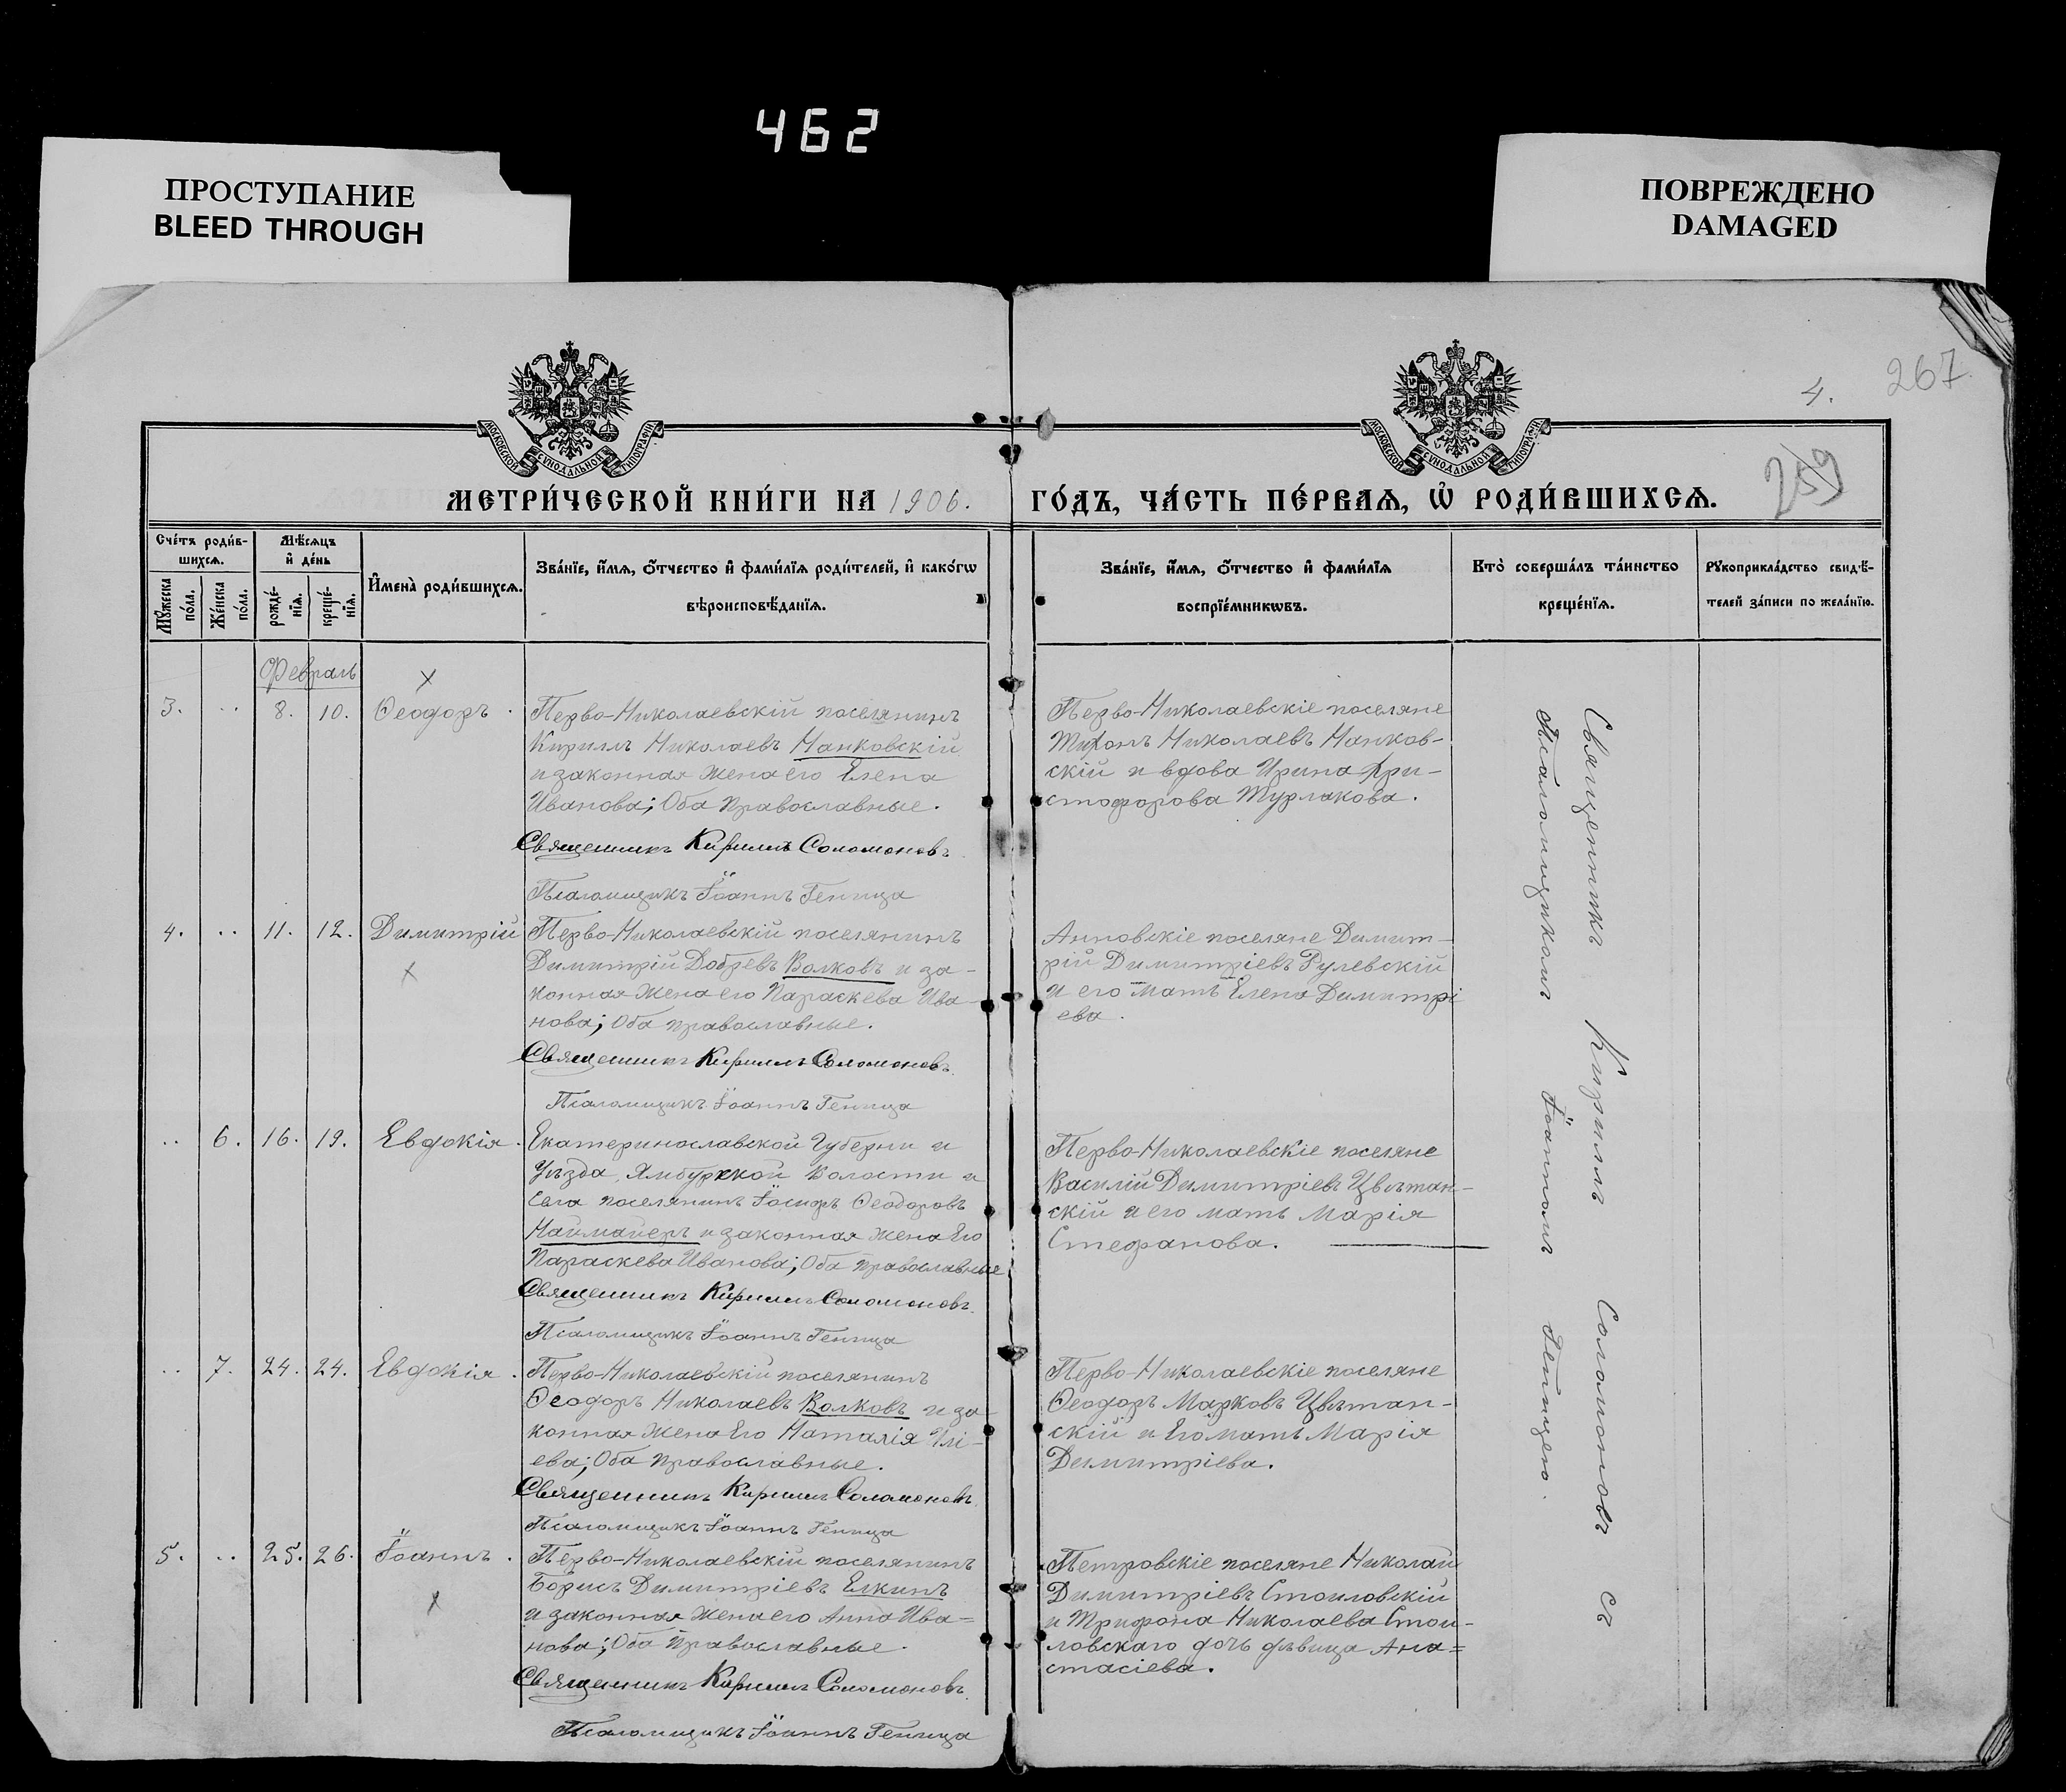 462
ПРОСТУПАНИЕ
BLEED THROUGH
ПОВРЕЖДЕНО
DAMAGED
4.
267
259
МОСКОВСКОЙ СѴНОДАЛЬНОЙ ТИПОГРАФІИ
МОСКОВСКОЙ СѴНОДАЛЬНОЙ ТИПОГРАФІИ
МЕТРИ́ЧЕСКОЙ КНИ́ГИ НА 1906. ГО́ДЪ, ЧА́СТЬ ПЕ́РВАѦ, Ѡ҆ РОДИ́ВШИХСѦ.
Сче́тъ роди́в-
шихсѧ.
Мꙋ́жеска по́ла.
Же́нска по́ла.
Мѣ́сѧцъ
и҆ де́нь
рожде́-
нїѧ.
креще́-
нїѧ.
И҆мена̀ роди́вшихсѧ.
Зва́нїе, и҆́мѧ, ѻ҆́тчество и҆ фами́лїѧ роди́телей, и҆ како́гѡ
вѣроисповѣ́данїѧ.
Зва́нїе, и҆́мѧ, ѻ҆́тчество и҆ фами́лїѧ
воспрїе́мникѡвъ.
Кто̀ соверша́лъ та́инство
креще́нїѧ.
Рꙋкоприкла́дство свидѣ́-
телей за́писи по жела́нїю.
Февраль
3. .. 8. 10. Ѳеодоръ.
Перво-Николаевскій поселянинъ
Кириллъ Николаевъ Манковскій
и законная жена его Елена
Иванова; Оба православные.
Священникъ Кириллъ Соломоновъ
Псаломщикъ Іоаннъ Геница
Перво-Николаевскіе поселяне
Тихонъ Николаевъ Манков-
скій и вдова Ирина Хри-
стофорова Турлакова.
4. .. 11. 12. Димитрій
Перво-Николаевскій поселянинъ
Димитрій Добревъ Волковъ и за-
конная жена его Параскева Ива-
нова; Оба православные.
Священникъ Кириллъ Соломоновъ
Псаломщикъ Іоаннъ Геница
Анновскіе поселяне Димит-
рій Димитріевъ Рулевскій
и его мать Елена Димитрі
ева.
.. 6. 16. 19. Евдокія.
Екатеринославской Губерніи и
Уѣзда, Ямбургской Волости и
села поселянинъ Іосифъ Ѳеодоровъ
Наймайеръ и законная жена Его
Параскева Иванова; Оба православные
Священникъ Кириллъ Соломоновъ.
Псаломщикъ Іоаннъ Геница
Перво-Николаевскіе поселяне
Василій Димитріевъ Цвѣтан-
скій и его мать Марія
Стефанова.
.. 7. 24. 24. Евдокія.
Перво-Николаевскій поселянинъ
Ѳеодоръ Николаевъ Волковъ и за
конная жена Его Наталія Илі-
ева; Оба православные.
Священникъ Кириллъ Соломоновъ.
Псаломщикъ Іоаннъ Геница
Перво-Николаевскіе поселяне
Ѳеодоръ Марковъ Цвѣтан-
скій и Его мать Марія
Димитріева.
5. .. 25. 26. Іоаннъ.
Перво-Николаевскій поселянинъ
Борисъ Димитріевъ Елкинъ
и законная жена его Анна Ива=
нова; Оба православные.
Священникъ Кириллъ Соломоновъ.
Псаломщикъ Іоаннъ Геница
Петровскіе поселяне Николай
Димитріевъ Стоиловскій
и Трифона Николаева Стои-
ловскаго дочь дѣвица Ана=
стасіева.
Священникъ Кириллъ Соломоновъ съ
Псаломщикомъ Іоанномъ Геницею.